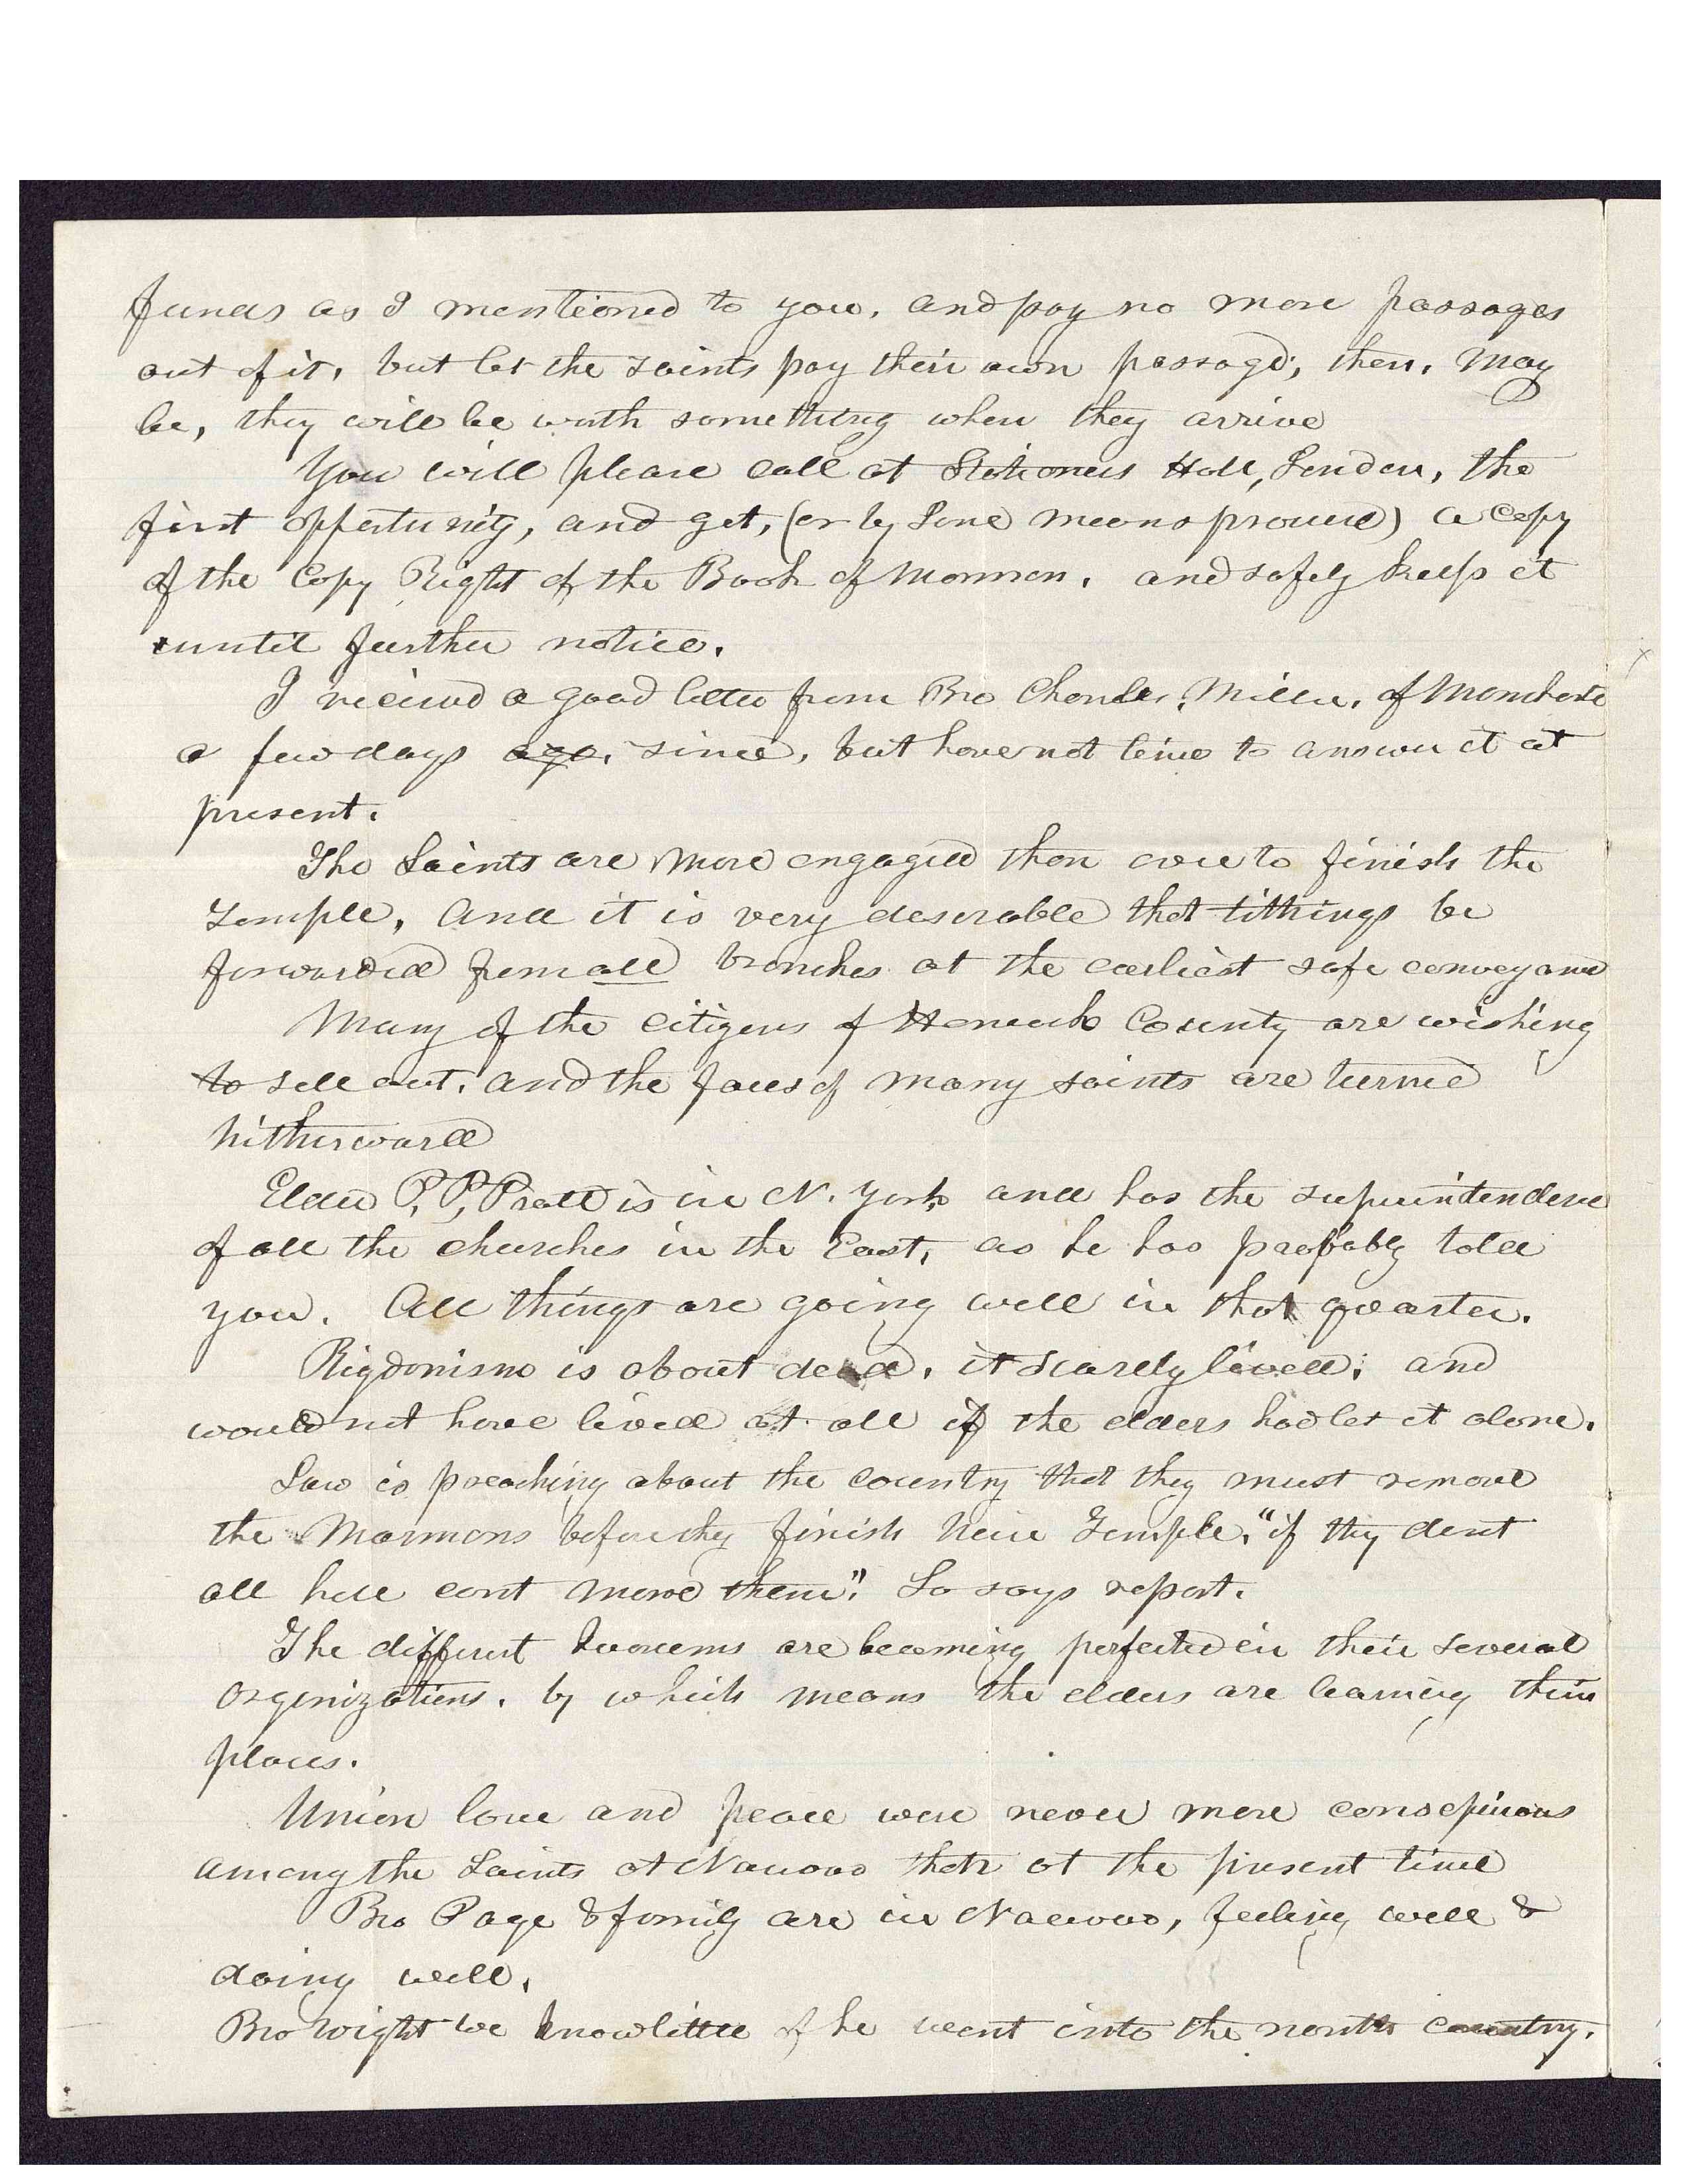 funds as I mentioned to you, and pay no more passages
out of it, but let the saints pay their own passage; then, may
be, they will be worth something when they arrive
You will please call at Stationers Hall, London, the
first opportunity, and get, (or by some means procure) a copy
of the Copy Right of the Book of Mormon, and safely keep it
until further notice.
I recieved a good letter from Bro Charles Miller, of Manchester
a few days ago, since, but have not time to answer it at
present.
The Saints are more engaged than ever to finish the
Temple, and it is very desirable that tithings be
forwarded from all branches at the earliest safe conveyance
Many of the citizens of Hancock County are wishing
to sell out, and the faces of many saints are turned
hitherward
Elder P. P. Pratt is in N. York and has the superintendence
of all the churches in the East, as he has probably told
you. All things are going well in that quarter.
Rigdonism is about dead, it scarcely lived; and
would not have lived at all if the elders had let it alone.
Law is preaching about the country that they must remove
the Mormons before they finish their Temple, "if they dont
all hell cant move them". So says report.
The different Quorums are becoming perfected in their several
organizations, by which means the elders are learning their
places.
Union love and peace were never more conscpicuous
among the Saints at Nauvoo than at the present time
Bro Page & family are in Nauvoo, feeling well &
doing well.
Bro Wight we know little of he went into the north country.